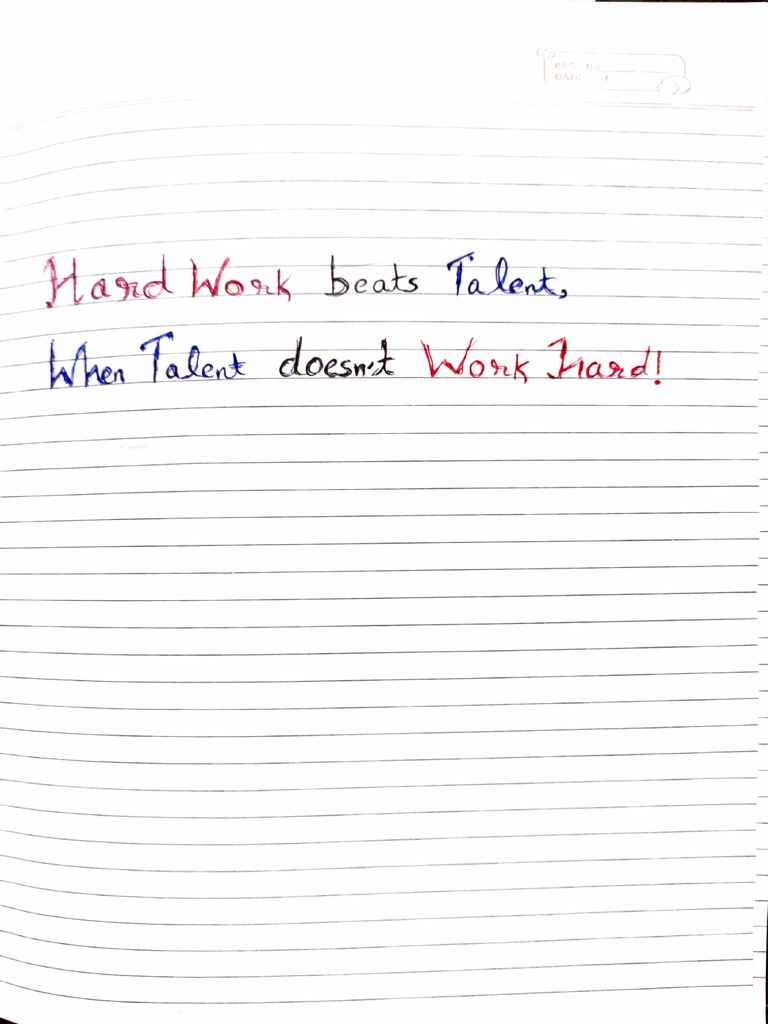 Hard Work beats Talent,
When Talent doesn't Work Hard!